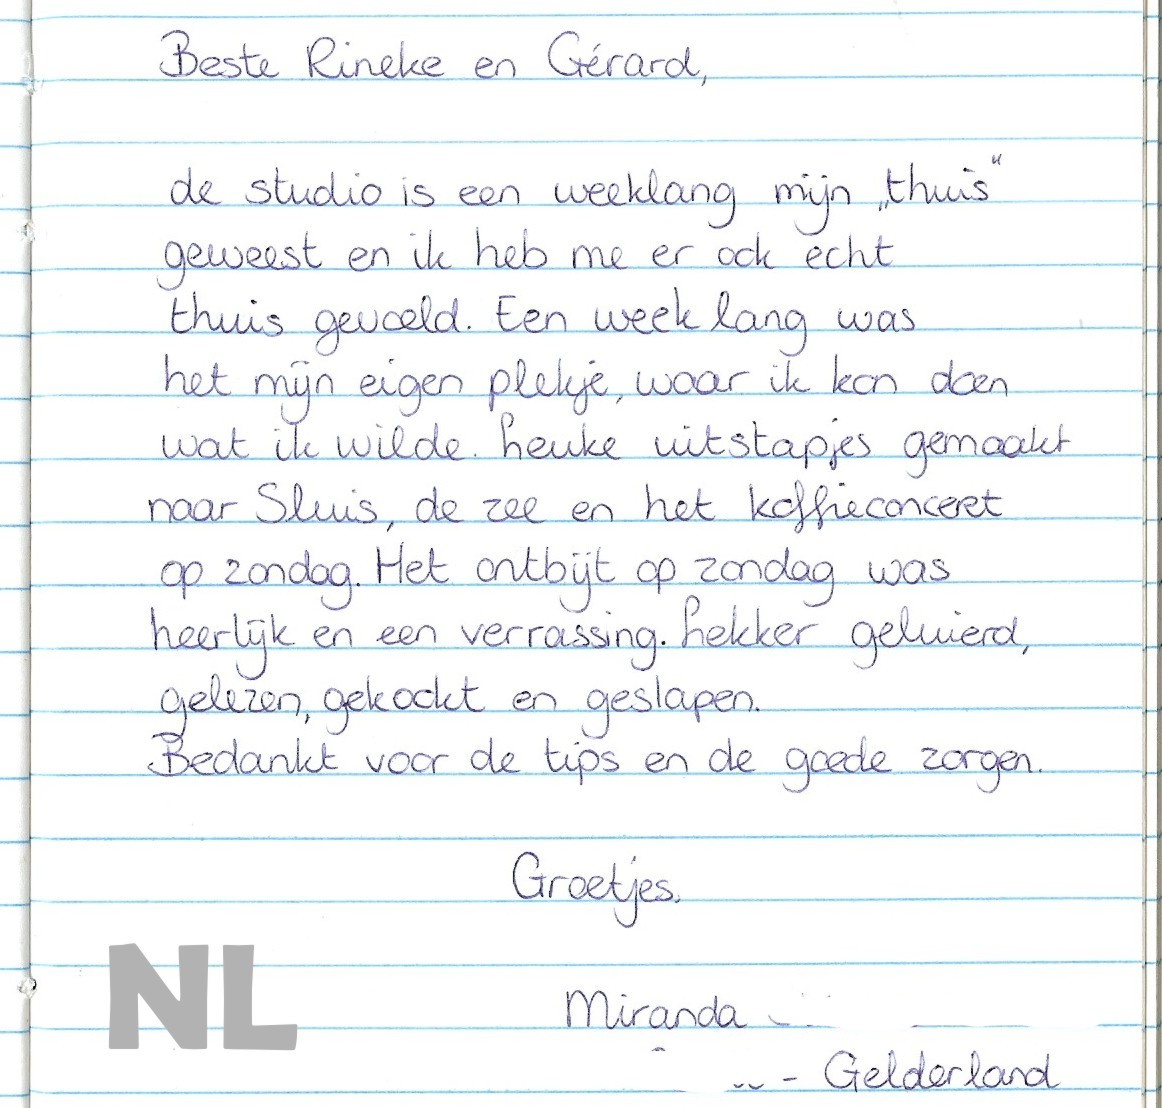 Beste Rineke en Gérard,
de studio is een weeklang mijn „thuis“
geweest en ik heb me er ook echt
thuis gevoeld. Een week lang was
het mijn eigen plekje, waar ik kon doen
wat ik wilde. Leuke uitstapjes gemaakt
naar Sluis, de zee en het koffieconceret
op zondag. Het ontbijt op zondag was
heerlijk en een verrassing. Lekker geluierd,
gelezen, gekookt en geslapen.
Bedankt voor de tips en de goede zorgen.
Groetjes.
Miranda
- Gelderland
NL